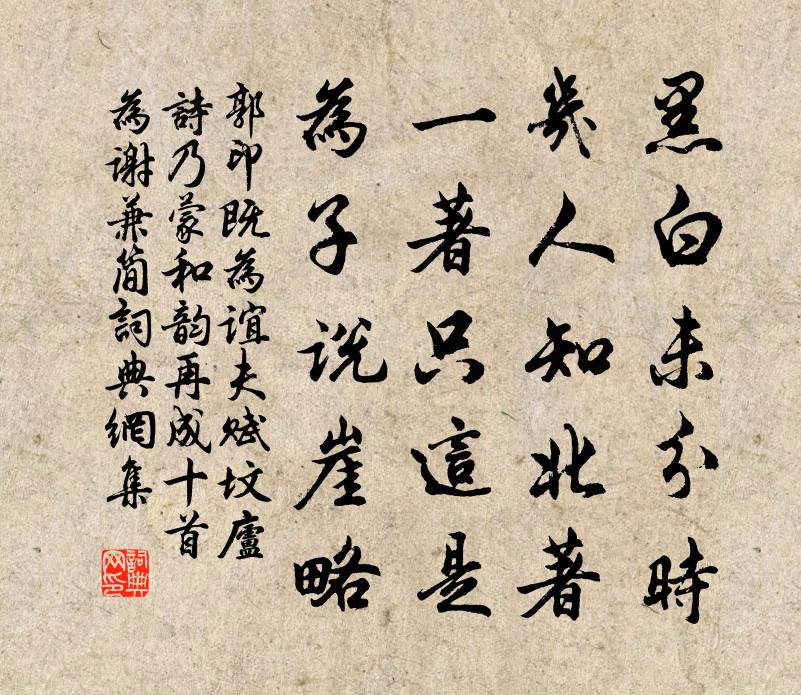 黑白未分時
幾人知北著
一著只這是
為子说崖略
郭印既為誼夫赋坟廬
詩乃蒙和韵再成十首
為谢兼简詞典網集
詞典网印